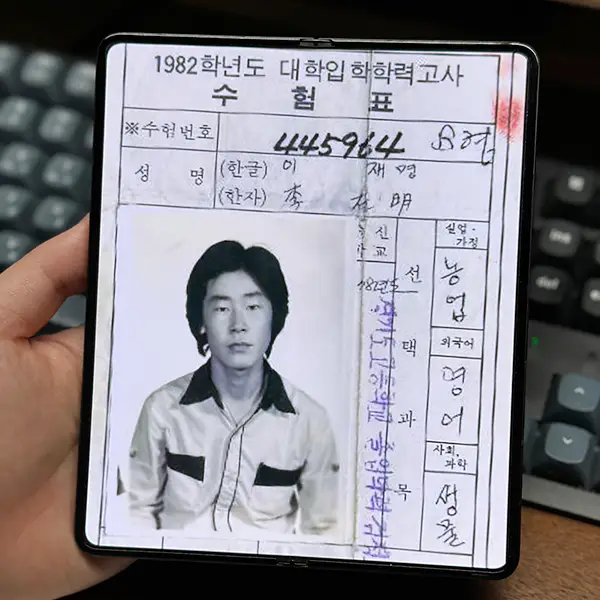 1982학년도 대학입학학력고사
수 험 표
※수험번호 445964 B형
성 명 (한글) 이 재 명
(한자) 李 在 明
출신
학교
선 택 과 목
실업·
가정
농업
외국어
영어
사회,
과학
생물